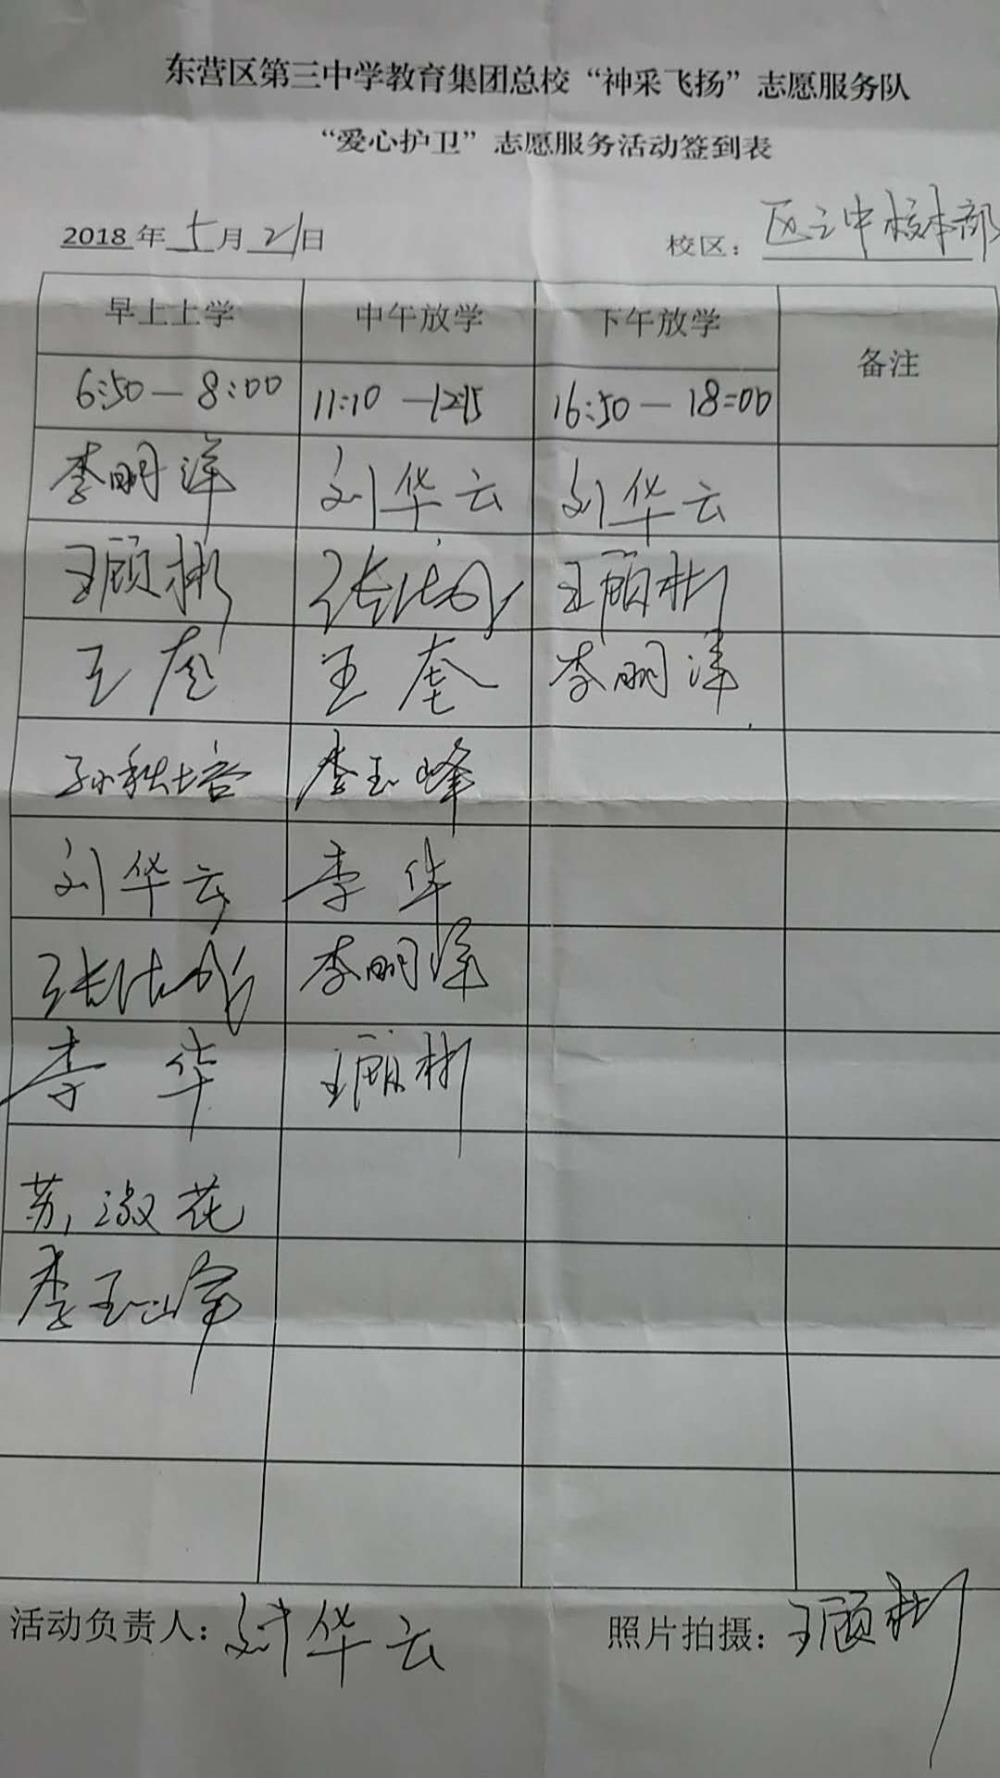 东营区第三中学教育集团总校“神采飞扬”志愿服务队
“爱心护卫”志愿服务活动签到表
2018年 5月 21日 校区：区三中校本部
早上上学 中午放学 下午放学 备注
6:50—8:00 11:10—12:15 16:50—18:00
李明洋 刘华云 刘华云
王顾彬 王顾彬
王奎 王奎 李明洋
孙秋培 李玉峰
刘华云 李华
李明洋
李华 王顾彬
苏淑花
李玉峰
活动负责人：刘华云 照片拍摄：王顾彬